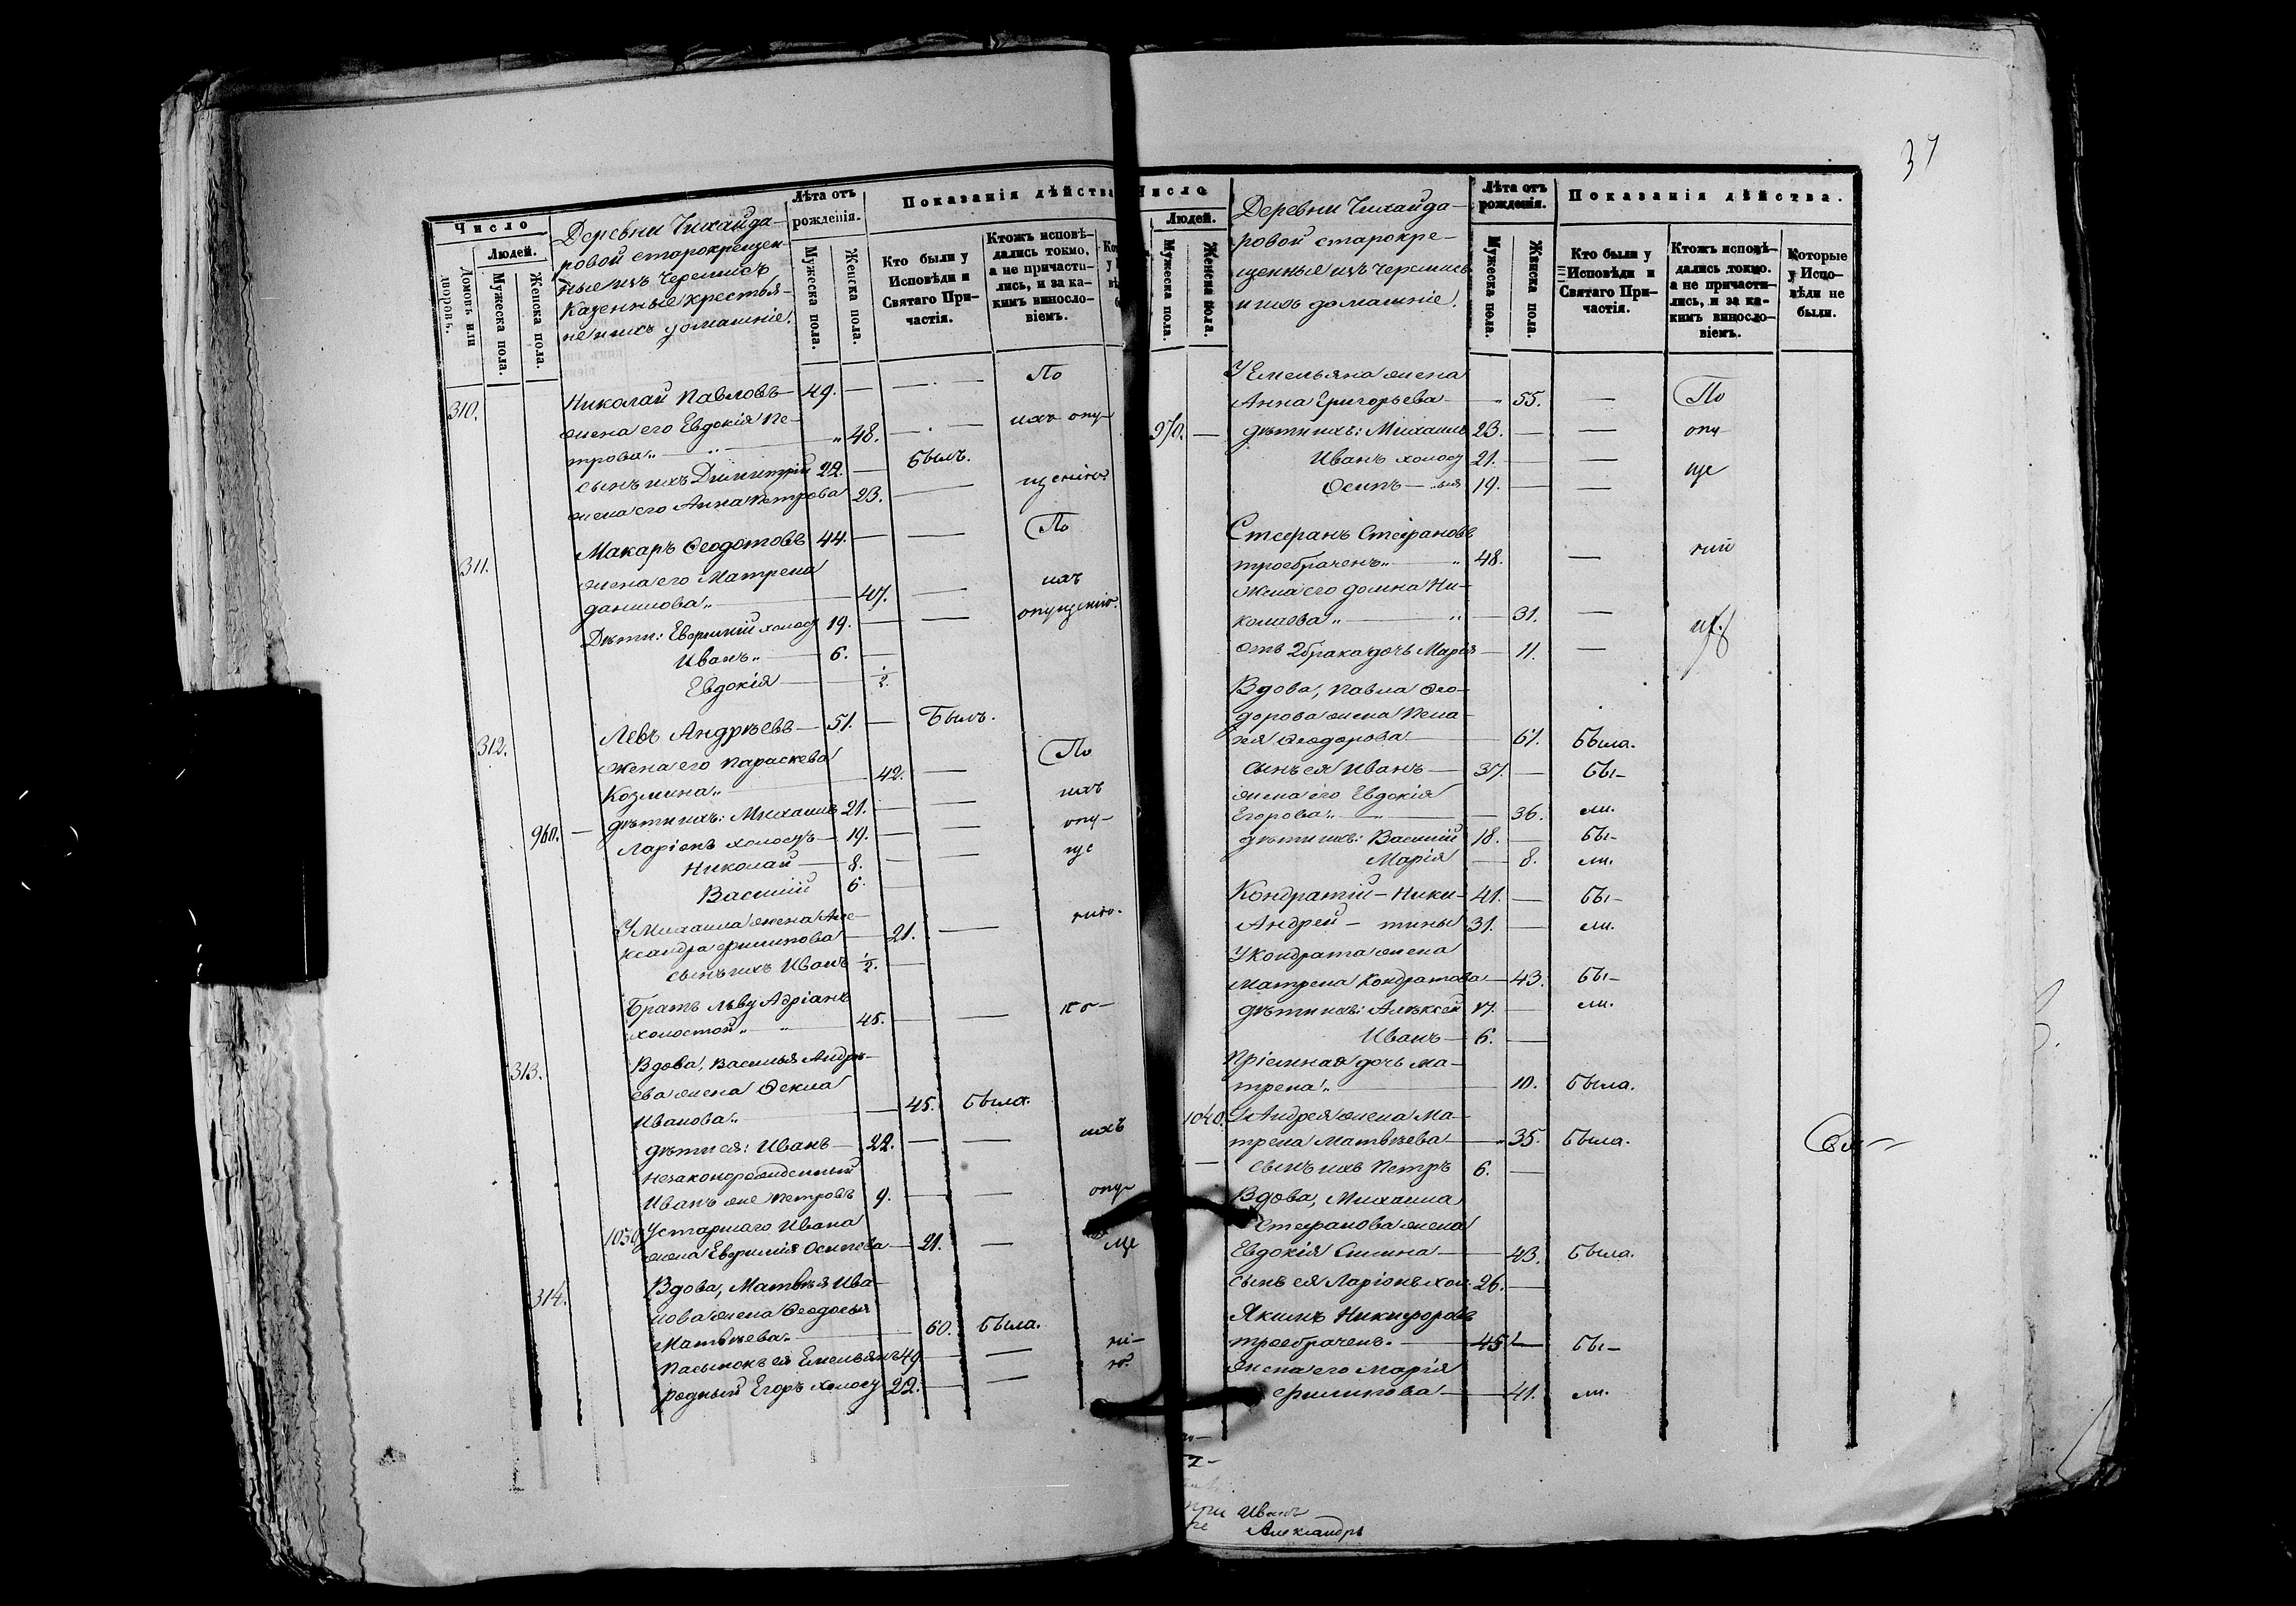 Число
Людей.
Домовъ или дворовъ.
Мужеска пола.
Женска пола.
Деревни Чихайда-
ровой старокрещен-
ные изъ Черемисъ
Казенные крестья-
не и ихъ домашніе.
Лѣта отъ рожденія.
Мужеска пола.
Женска пола.
Показанія дѣйства
Кто были у Исповѣди и Святаго Причастія.
Ктожъ исповѣ-
дались токмо,
а не причасти-
лись, и за ка-
кимъ винословіемъ.
310. Николай Павловъ 49. — — По
жена его Евдокія Пе-
трова „ 48. — ихъ опу-
сынъ ихъ Димитрій 22. — былъ.
жена его Анна Петрова 23. — щенію
311. Макаръ Ѳеодотовъ 44. — — По
жена его Матрена
Данилова „ 47. — ихъ
Дѣти: Евфимій холост 19. — — опущенію.
Иванъ „ 6. —
Евдокія ½.
312. Левъ Андреѣвъ 51. — Былъ.
Жена его Параскева
Козмина „ 42. — По
960. — дѣти ихъ: Михаилъ 21. — — ихъ
Ларіонъ холостъ 19. — — опу-
Николай 8. — — ще
Василій 6. —
У Михаила жена Але-
ксандра Филипова 21. — нію.
сынъ ихъ Иванъ ½. —
Братъ Льву Адріанъ
холостой „ 45. — —
313. Вдова, Василья Андрѣ-
ева жена Ѳекла
Иванова „ 45. была.
дѣти ея: Иванъ 22. — — ихъ
незаконорожденный
Иванъ же Петровъ 9. — — опу-
1030 У старшаго Ивана
жена Евфимія Осипова 21. — ще
314. Вдова, Матвѣя Ива-
нова жена Ѳеодосья
Матвѣева „ 60. была.
Пасынокъ ея Емельянъ 49 — ні-
родный Егоръ холост 22. — — ю.
37
Число
Людей.
Мужеска пола.
Женска пола.
Деревни Чихайда-
ровой старокре-
щенные изъ Черемисъ
и ихъ домашніе.
Лѣта отъ рожденія.
Мужеска пола.
Женска пола.
Показанія дѣйства.
Кто были у Исповѣди и Святаго Причастія.
Ктожъ исповѣ-
дались токмо,
а не причасти-
лись, и за ка-
кимъ винословіемъ.
Которые у Исповѣди не были.
У Емельяна жена
Анна Григорьева 55. — По
970. — дѣти ихъ: Михаилъ 23. — — опу-
Иванъ холост 21. — — ще
Осипъ 19. — —
Стефанъ Стефановъ
троебраченъ „ 48. —
Жена его Домна Ни-
колаева „ — 31. —
отъ 2 брака дочь Марія — 11. —
Вдова, Павла Ѳео-
дорова жена Пела-
гея Ѳеодорова 61. была.
Сынъ ея Иванъ 37. — бы-
жена его Евдокія
Егорова „ — 36. ли.
дѣти ихъ: Василій 18. — бы-
Марія — 8. ли.
Кондратій — Ники- 41. — бы-
Андрей — тины 31. — ли.
У Кондрата жена
Матрена Кондратова 43. бы-
дѣти ихъ: Алѣксѣй 17. — ли.
Иванъ 6. —
Пріемная дочь Ма-
трена „ 10. была.
1040. У Андрея жена Ма-
трена Матвѣева 35. была.
— сынъ ихъ Петръ 6. —
Вдова, Михаила
Стефанова жена
Евдокія Силина 43. была.
Сынъ ея Ларіонъ хол. 26. —
Якимъ Никифоровъ
троебраченъ. 45 — бы-
Жена его Марія
Филипова 41. ли.
Иванъ
Александръ